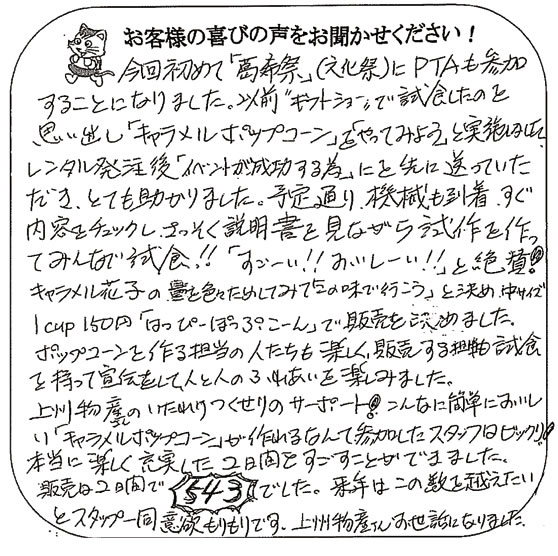 お客様の喜びの声をお聞かせください!
今回初めて「西希祭」(文化祭)にPTAも参加
することになりました。以前"ギフトショー"で試食したのを
思い出し「キャラメルポップコーン」を"やってみよう"と実施しました。
レンタル発注後「イベントが成功する為」にを先に送っていた
だき、とても助かりました。予定通り、機械も到着、すぐ
内容をチェックし、さっそく説明書を見ながら試作を作っ
てみんなで試食!!「すごーい!!おいしーい!!」と絶賛!
キャラメル花子の量を色々ためしてみて"この味で行こう"と決め、中サイズ
1cup 150円「はっぴーぽっぷこーん」で販売を決めました。
ポップコーンを作る担当の人たちも楽しく、販売する担当も試食
を持って宣伝をして人と人のふれあいを楽しみました。
上州物産さんのいたれりつくせりのサーポート!こんなに簡単においし
い「キャラメルポップコーン」が作れるなんて参加したスタッフはビックリ!
本当に楽しく充実した2日間をすごすことができました。
販売は2日間で543でした。来年はこの数を越えたい
とスタッフ一同意欲もりもりです、上州物産さんお世話になりました。